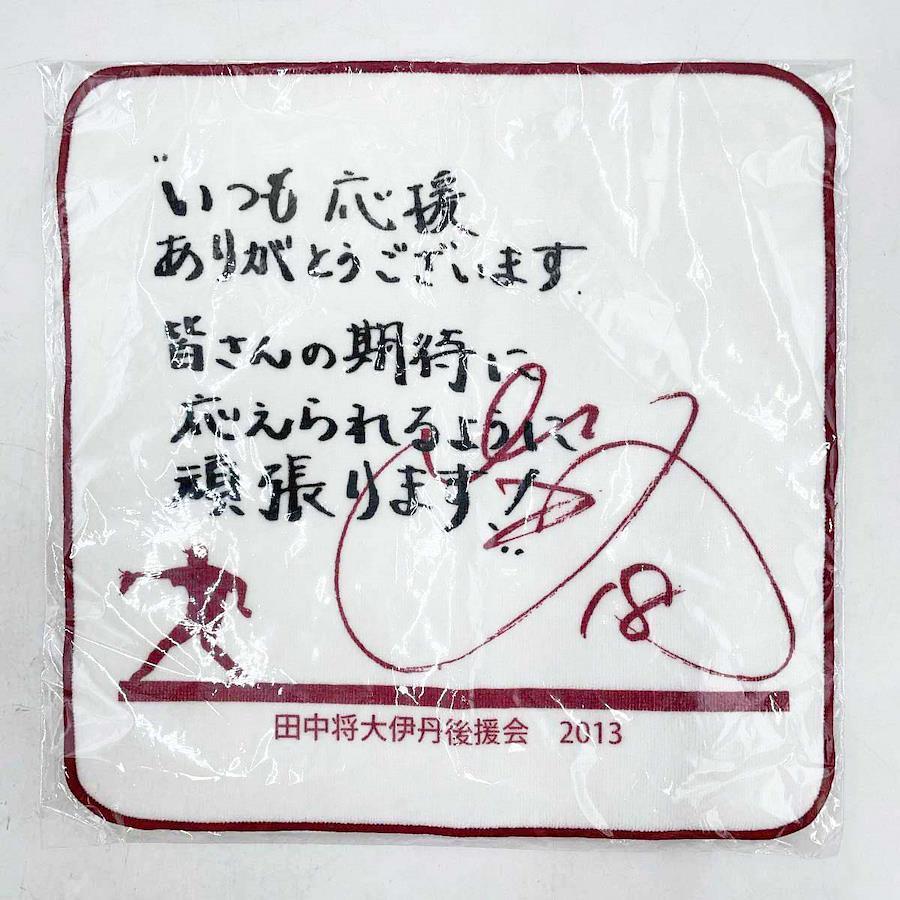 "いつも 応援
ありがとうございます.
皆さんの期待に
応えられるように
頑張ります!
18
田中将大伊丹後援会 2013